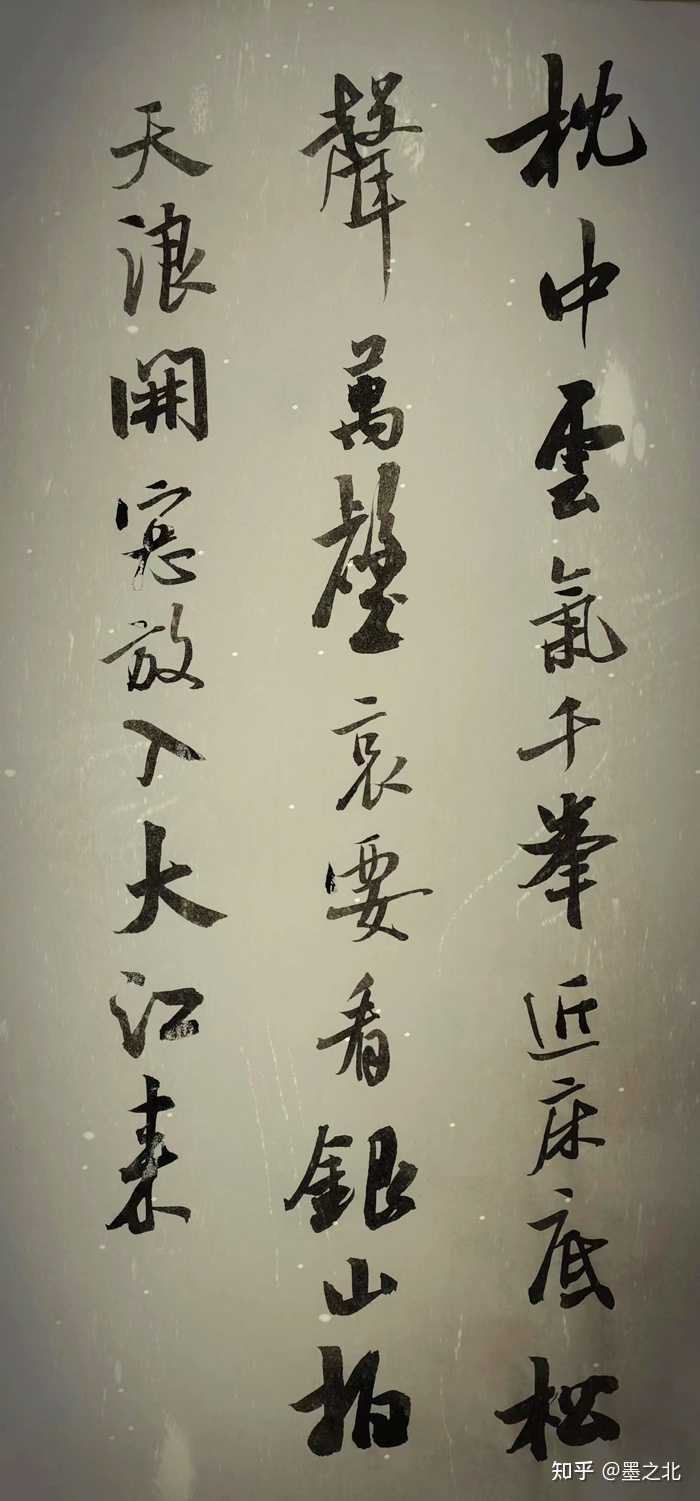 枕中雲氣千峯近床底松
聲萬壑哀要看銀山拍
天浪開窓放入大江来
知乎 @墨之北